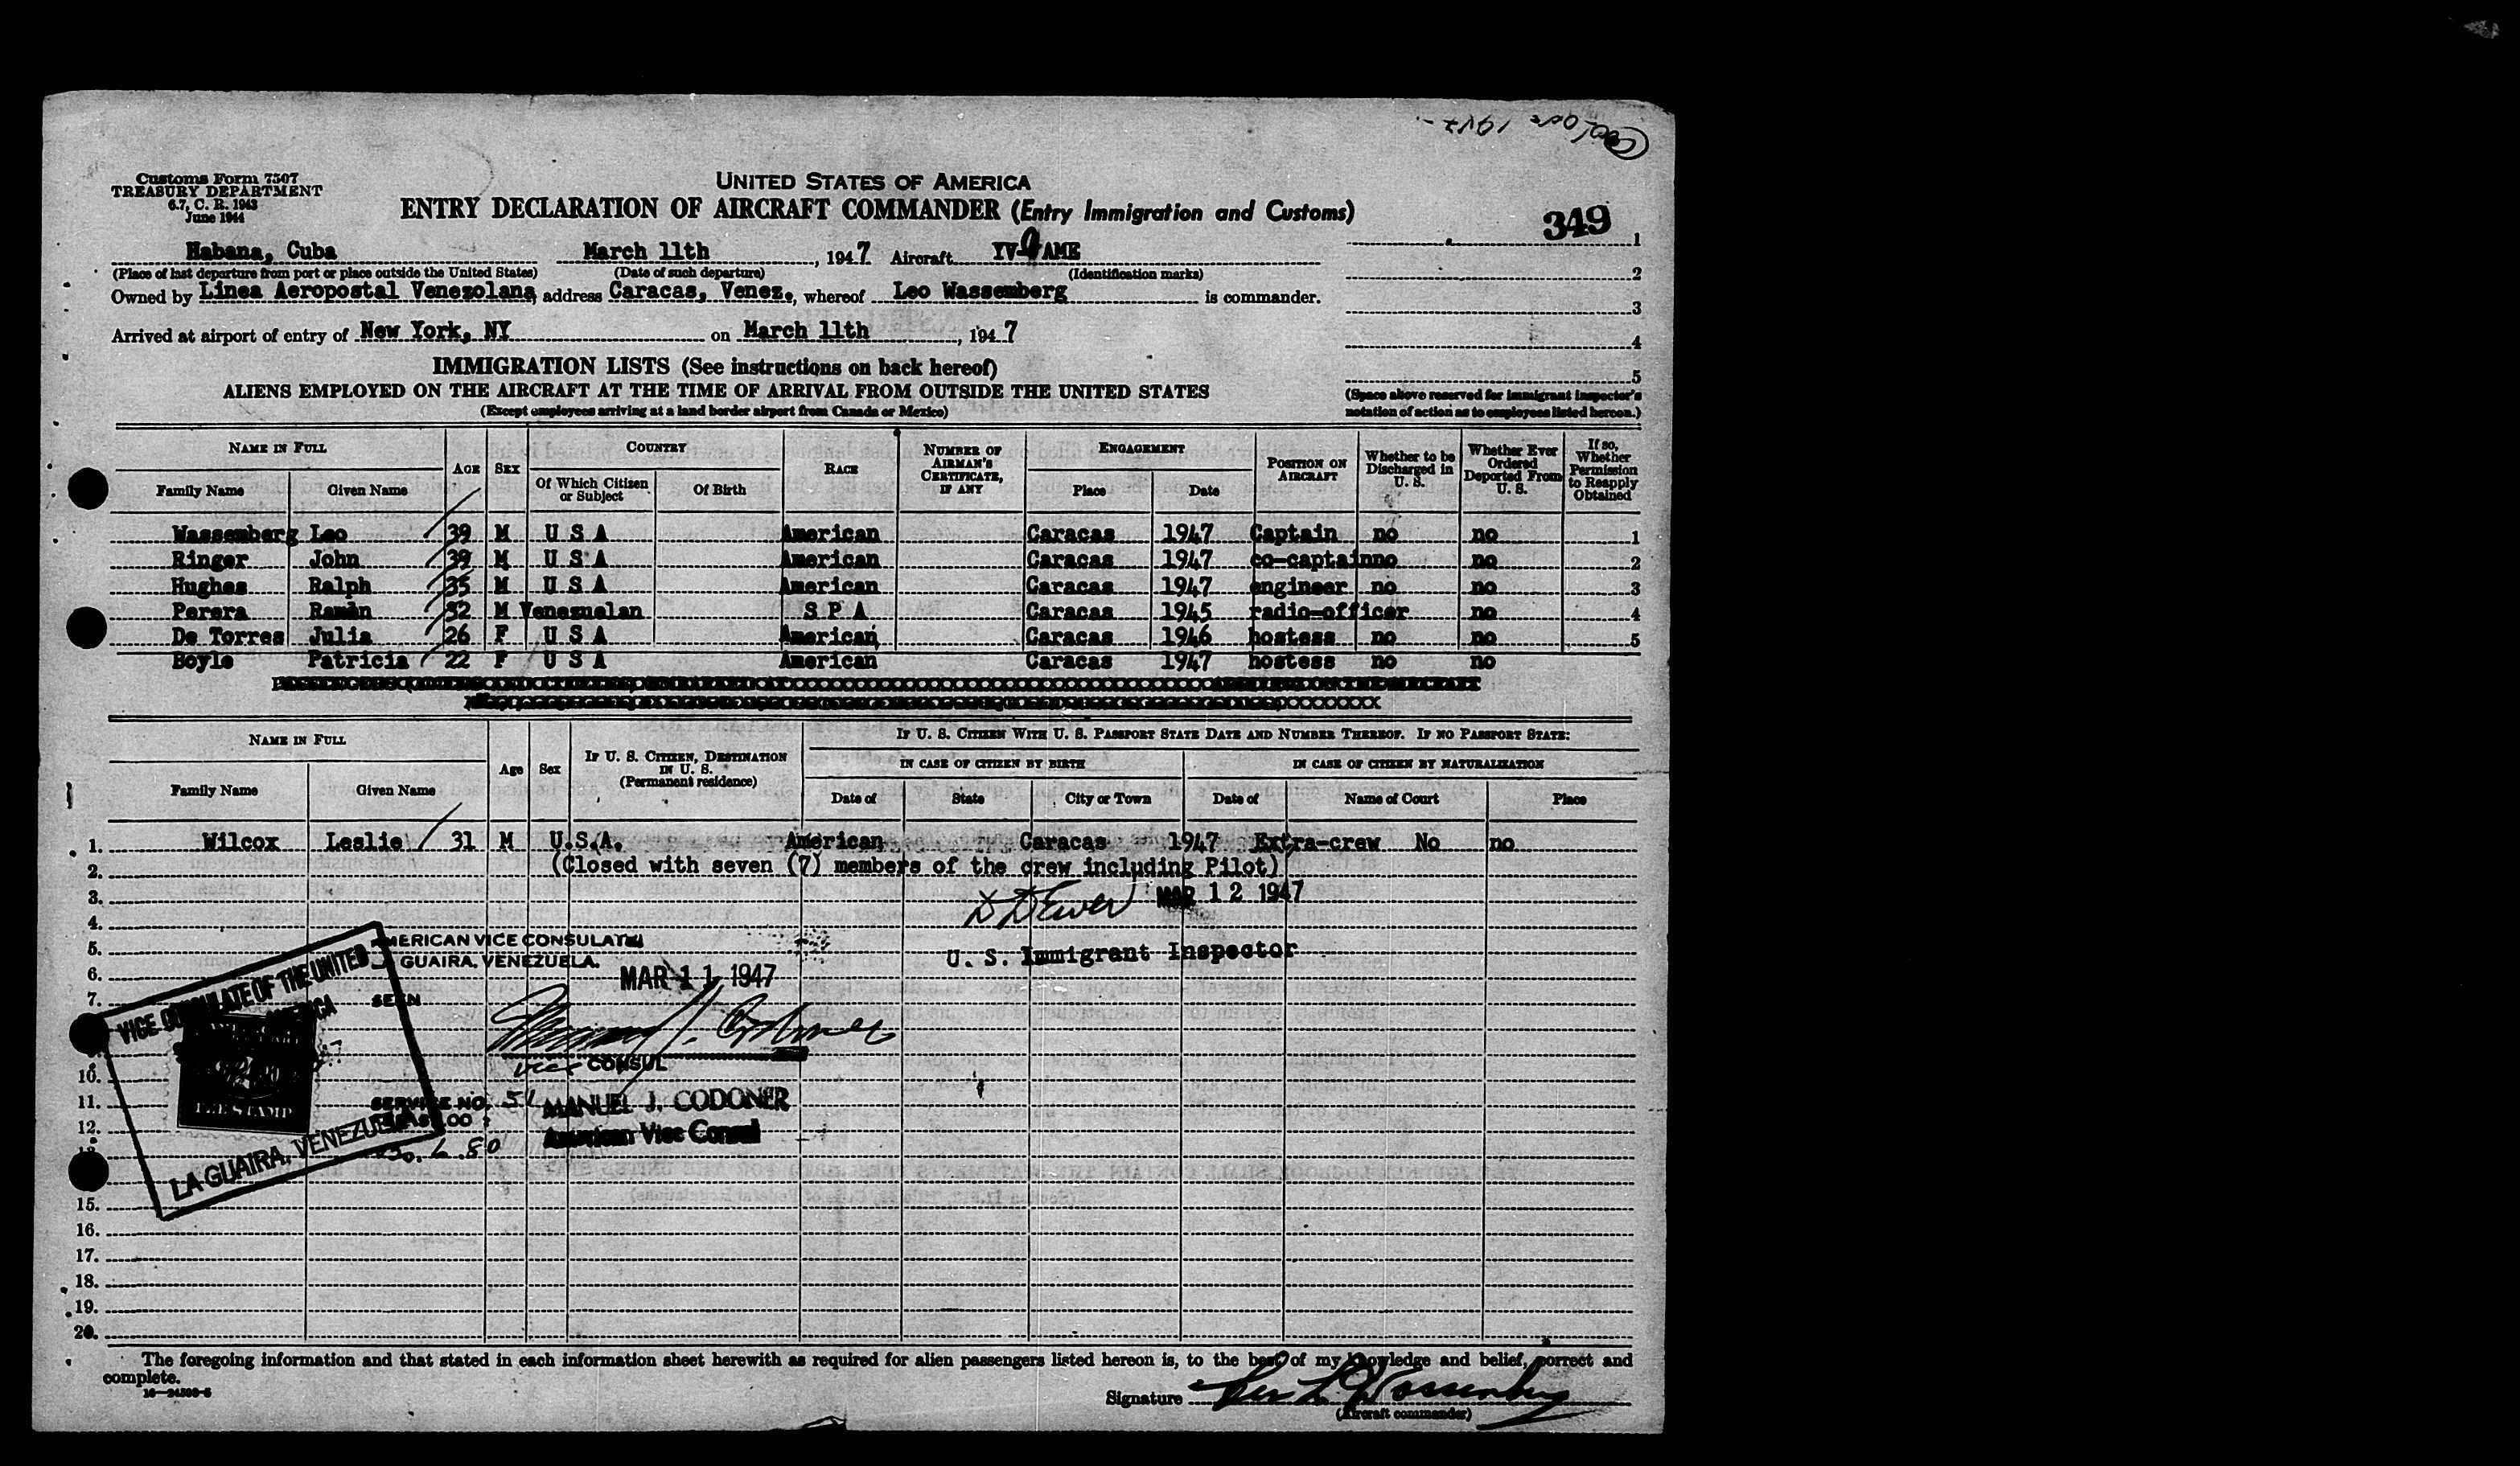 Customs Form 7507
TREASURY DEPARTMENT
6.7, C. R. 1943
June 1944
UNITED STATES OF AMERICA
ENTRY DECLARATION OF AIRCRAFT COMMANDER (Entry Immigration and Customs)
349
Habana, Cuba March 11th, 1947 Aircraft YV- AME 1
(Place of last departure from port or place outside the United States) (Date of such departure) (Identification marks) 2
Owned by Linea Aeropostal Venezolana, address Caracas, Venez., whereof Leo Wassemberg is commander.
3
Arrived at airport of entry of New York, NY on March 11th, 1947
4
IMMIGRATION LISTS (See instructions on back hereof)
5
ALIENS EMPLOYED ON THE AIRCRAFT AT THE TIME OF ARRIVAL FROM OUTSIDE THE UNITED STATES
(Except employees arriving at a land border airport from Canada or Mexico)
(Space above reserved for immigrant inspector's
notation of action as to employees listed hereon.)
NAME IN FULL AGE SEX COUNTRY RACE NUMBER OF AIRMAN'S CERTIFICATE, IF ANY ENGAGEMENT POSITION ON AIRCRAFT Whether to be Discharged in U. S. Whether Ever Ordered Deported From U. S. If so, Whether Permission to Reapply Obtained
Family Name Given Name Of Which Citizen or Subject Of Birth Place Date
Wassemberg Leo 39 M U S A American Caracas 1947 Captain no no 1
Ringer John 39 M U S A American Caracas 1947 co-captain no no 2
Hughes Ralph 35 M U S A American Caracas 1947 engineer no no 3
Perera Ramàn 32 M Venezuelan S P A Caracas 1945 radio-officer no 4
De Torres Julia 26 F U S A American Caracas 1946 hostess no no 5
Boyle Patricia 22 F U S A American Caracas 1947 hostess no no
NAME IN FULL Age Sex IF U. S. CITIZEN, DESTINATION IN U. S. (Permanent residence) IF U. S. CITIZEN WITH U. S. PASSPORT STATE DATE AND NUMBER THEREOF. IF NO PASSPORT STATE:
IN CASE OF CITIZEN BY BIRTH IN CASE OF CITIZEN BY NATURALIZATION
Family Name Given Name Date of State City or Town Date of Name of Court Place
1. Wilcox Leslie 31 M U.S.A. American Caracas 1947 Extra-crew No no
2. (Closed with seven (7) members of the crew including Pilot)
3. MAR 12 1947
4.
5. AMERICAN VICE CONSULATE
U. S. Immigrant Inspector
GUAIRA, VENEZUELA.
6. MAR 11 1947
7. SEEN
VICE CONSULATE OF THE UNITED
AMERICA
vice CONSUL
10.
11. SERVICE NO. 51 MANUEL J. CODONER
12. American Vice Consul
FEE STAMP
LA GUAIRA, VENEZUELA
15.
16.
17.
18.
19.
20.
The foregoing information and that stated in each information sheet herewith as required for alien passengers listed hereon is, to the best of my knowledge and belief, correct and
complete.
16—24509-5
Signature Leo L Wassenberg
(Aircraft commander)